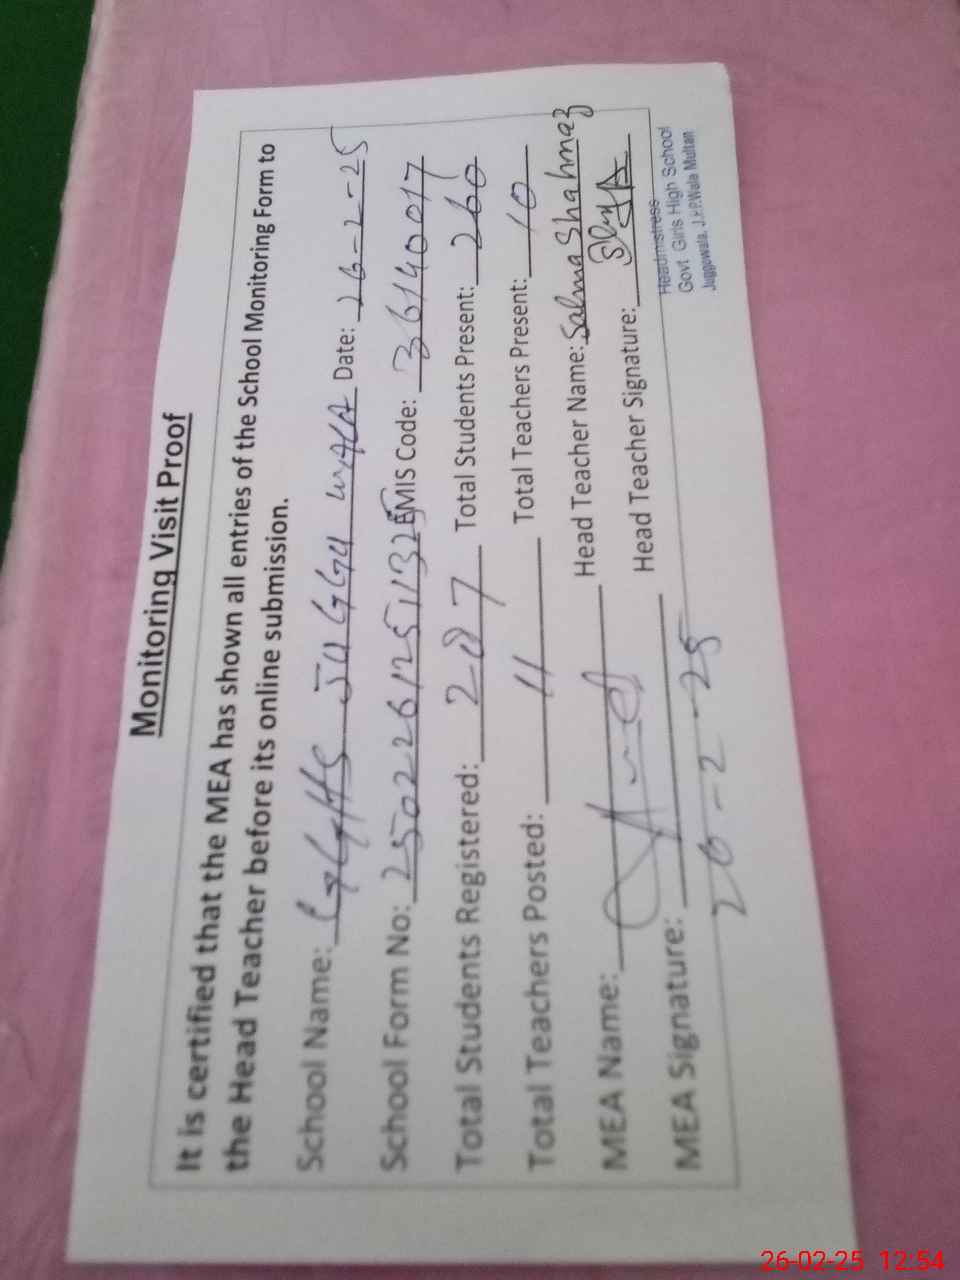 Monitoring Visit Proof
It is certified that the MEA has shown all entries of the School Monitoring Form to
the Head Teacher before its online submission.
School Name: GGHS JUGGU WALA Date: 26-2-25
School Form No: 25022612511325 EMIS Code: 36140017
Total Students Registered: 287 Total Students Present: 260
Total Teachers Posted: 11 Total Teachers Present: 10
MEA Name: Head Teacher Name: Salma Shahnaz
MEA Signature: Head Teacher Signature:
26-2-25
Headmistress
Govt Girls High School
Juggowala, J.P.P.Wala Multan
26-02-25 12:54